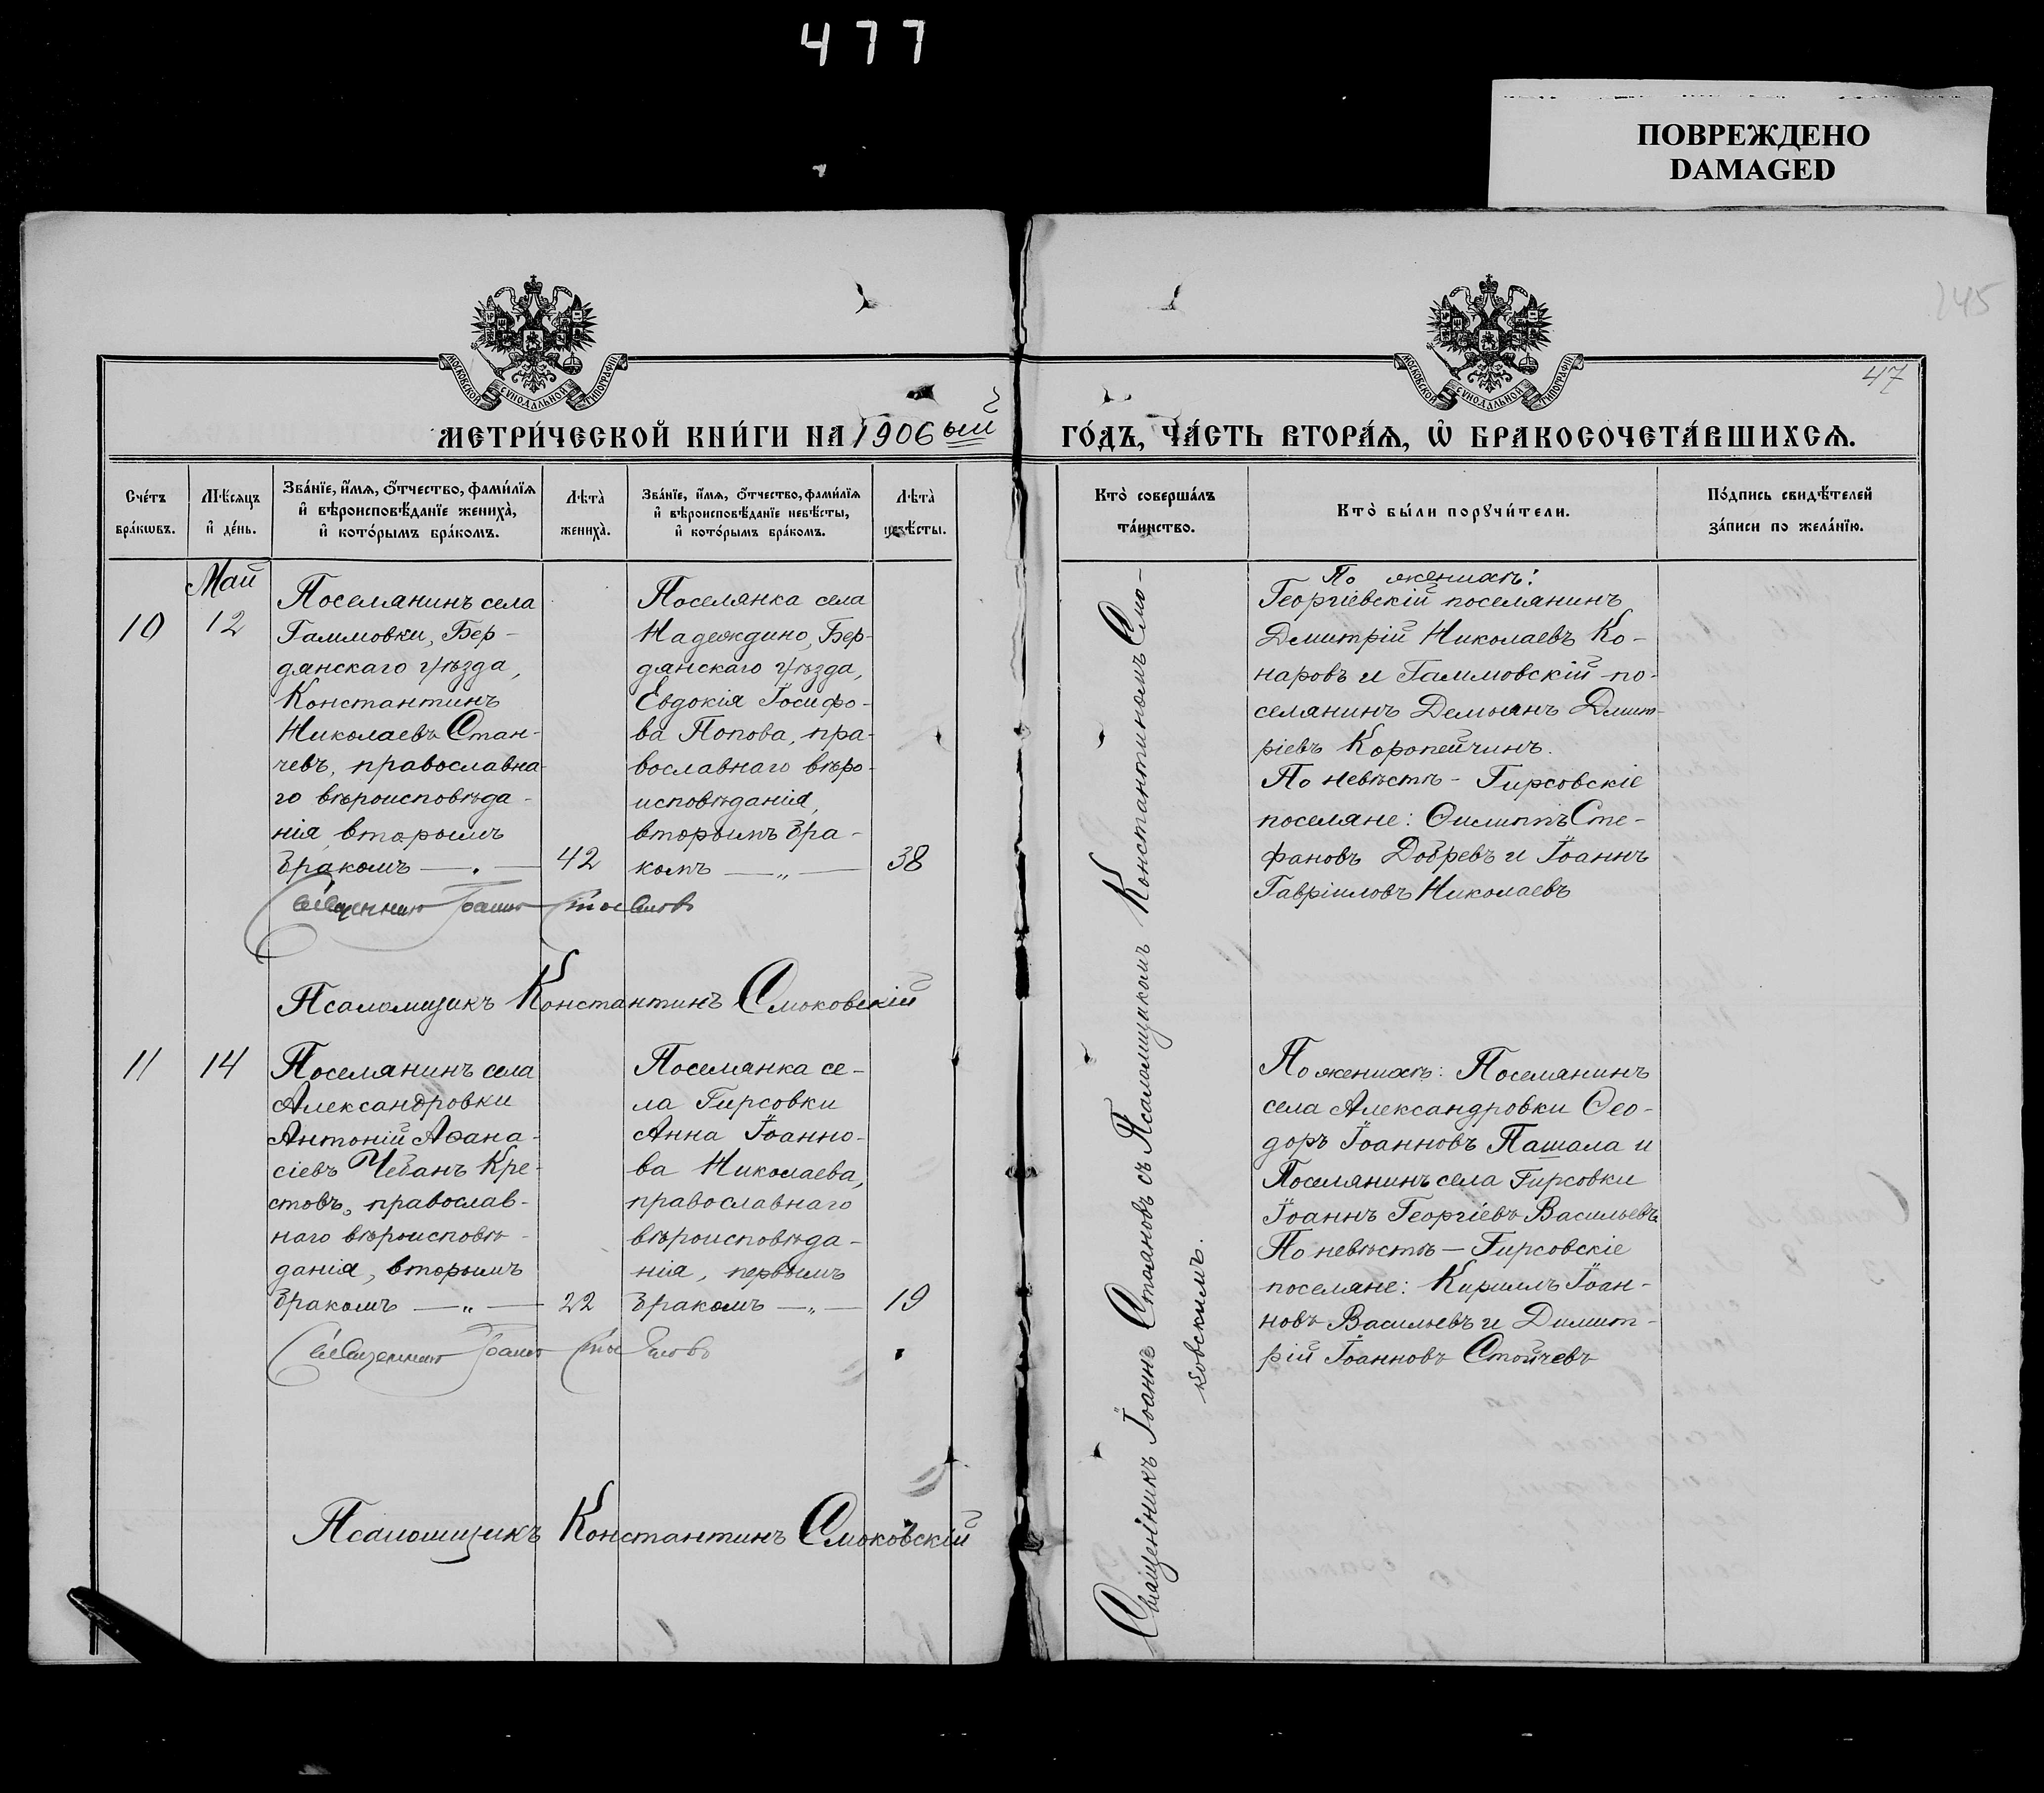 477
ПОВРЕЖДЕНО
DAMAGED
245
47
МОСКОВСКОЙ СѴНОДАЛЬНОЙ ТИПОГРАФІИ
МОСКОВСКОЙ СѴНОДАЛЬНОЙ ТИПОГРАФІИ
МЕТРИ́ЧЕСКОЙ КНИ́ГИ НА 1906 ый
ГО́ДЪ, ЧА́СТЬ ВТОРА́Ѧ, Ѡ҆ БРАКОСОЧЕТА́ВШИХСѦ.
Сче́тъ
бра́кѡвъ.
Мѣ́сѧцъ
и҆ де́нь.
Зва́нїе, и҆́мѧ, ѻ҆́тчество, фами́лїѧ
и҆ вѣроисповѣ́данїе жениха̀,
и҆ кото́рымъ бра́комъ.
Лѣта̀
жениха̀.
Зва́нїе, и҆́мѧ, ѻ҆́тчество, фами́лїѧ
и҆ вѣроисповѣ́данїе невѣ́сты,
и҆ кото́рымъ бра́комъ.
Лѣта̀
невѣ́сты.
Кто̀ соверша́лъ
та́инство.
Кто̀ бы́ли порꙋчи́тели.
По́дпись свидѣ́телей
за́писи по жела́нїю.
Май
10
12
Поселянинъ села
Гаммовки, Бер-
дянскаго уѣзда,
Константинъ
Николаевъ Стан-
чевъ, православна-
го вѣроисповѣда-
нія, вторымъ
бракомъ — „ —
42
Поселянка села
Надеждино, Бер-
дянскаго уѣзда,
Евдокія Іосифо-
ва Попова, пра-
вославнаго вѣро-
исповѣданія,
вторымъ бра-
комъ — „ —
38
Священникъ Іоаннъ Стояновъ
Псаломщикъ Константинъ Смоковскій
По женихѣ:
Георгіевскій поселянинъ
Дмитрій Николаевъ Ко-
наровъ и Гаммовскій по-
селянинъ Демьянъ Дмит-
ріевъ Коропейчинъ.
По невѣстѣ – Гирсовскіе
поселяне: Ѳилиппъ Сте-
фановъ Добревъ и Іоаннъ
Гавріиловъ Николаевъ
11
14
Поселянинъ села
Александровки
Антоній Аѳана-
сіевъ Чебанъ Кре-
стовъ, православ-
наго вѣроисповѣ-
данія, вторымъ
бракомъ — „ —
22
Поселянка се-
ла Гирсовки
Анна Іоанно-
ва Николаева,
православнаго
вѣроисповѣда-
нія, первымъ
бракомъ — „ —
19
Священникъ Іоаннъ Стояновъ
Псаломщикъ Константинъ Смоковскій
По женихѣ: Поселянинъ
села Александровки Ѳео-
доръ Іоанновъ Пашала и
Поселянинъ села Гирсовки
Іоаннъ Георгіевъ Васильевъ
По невѣстѣ – Гирсовскіе
поселяне: Кириллъ Іоан-
новъ Васильевъ и Димит-
рій Іоанновъ Стойчевъ
Священникъ Іоаннъ Стояновъ съ Псаломщикомъ Константиномъ Смо-
ковскимъ.